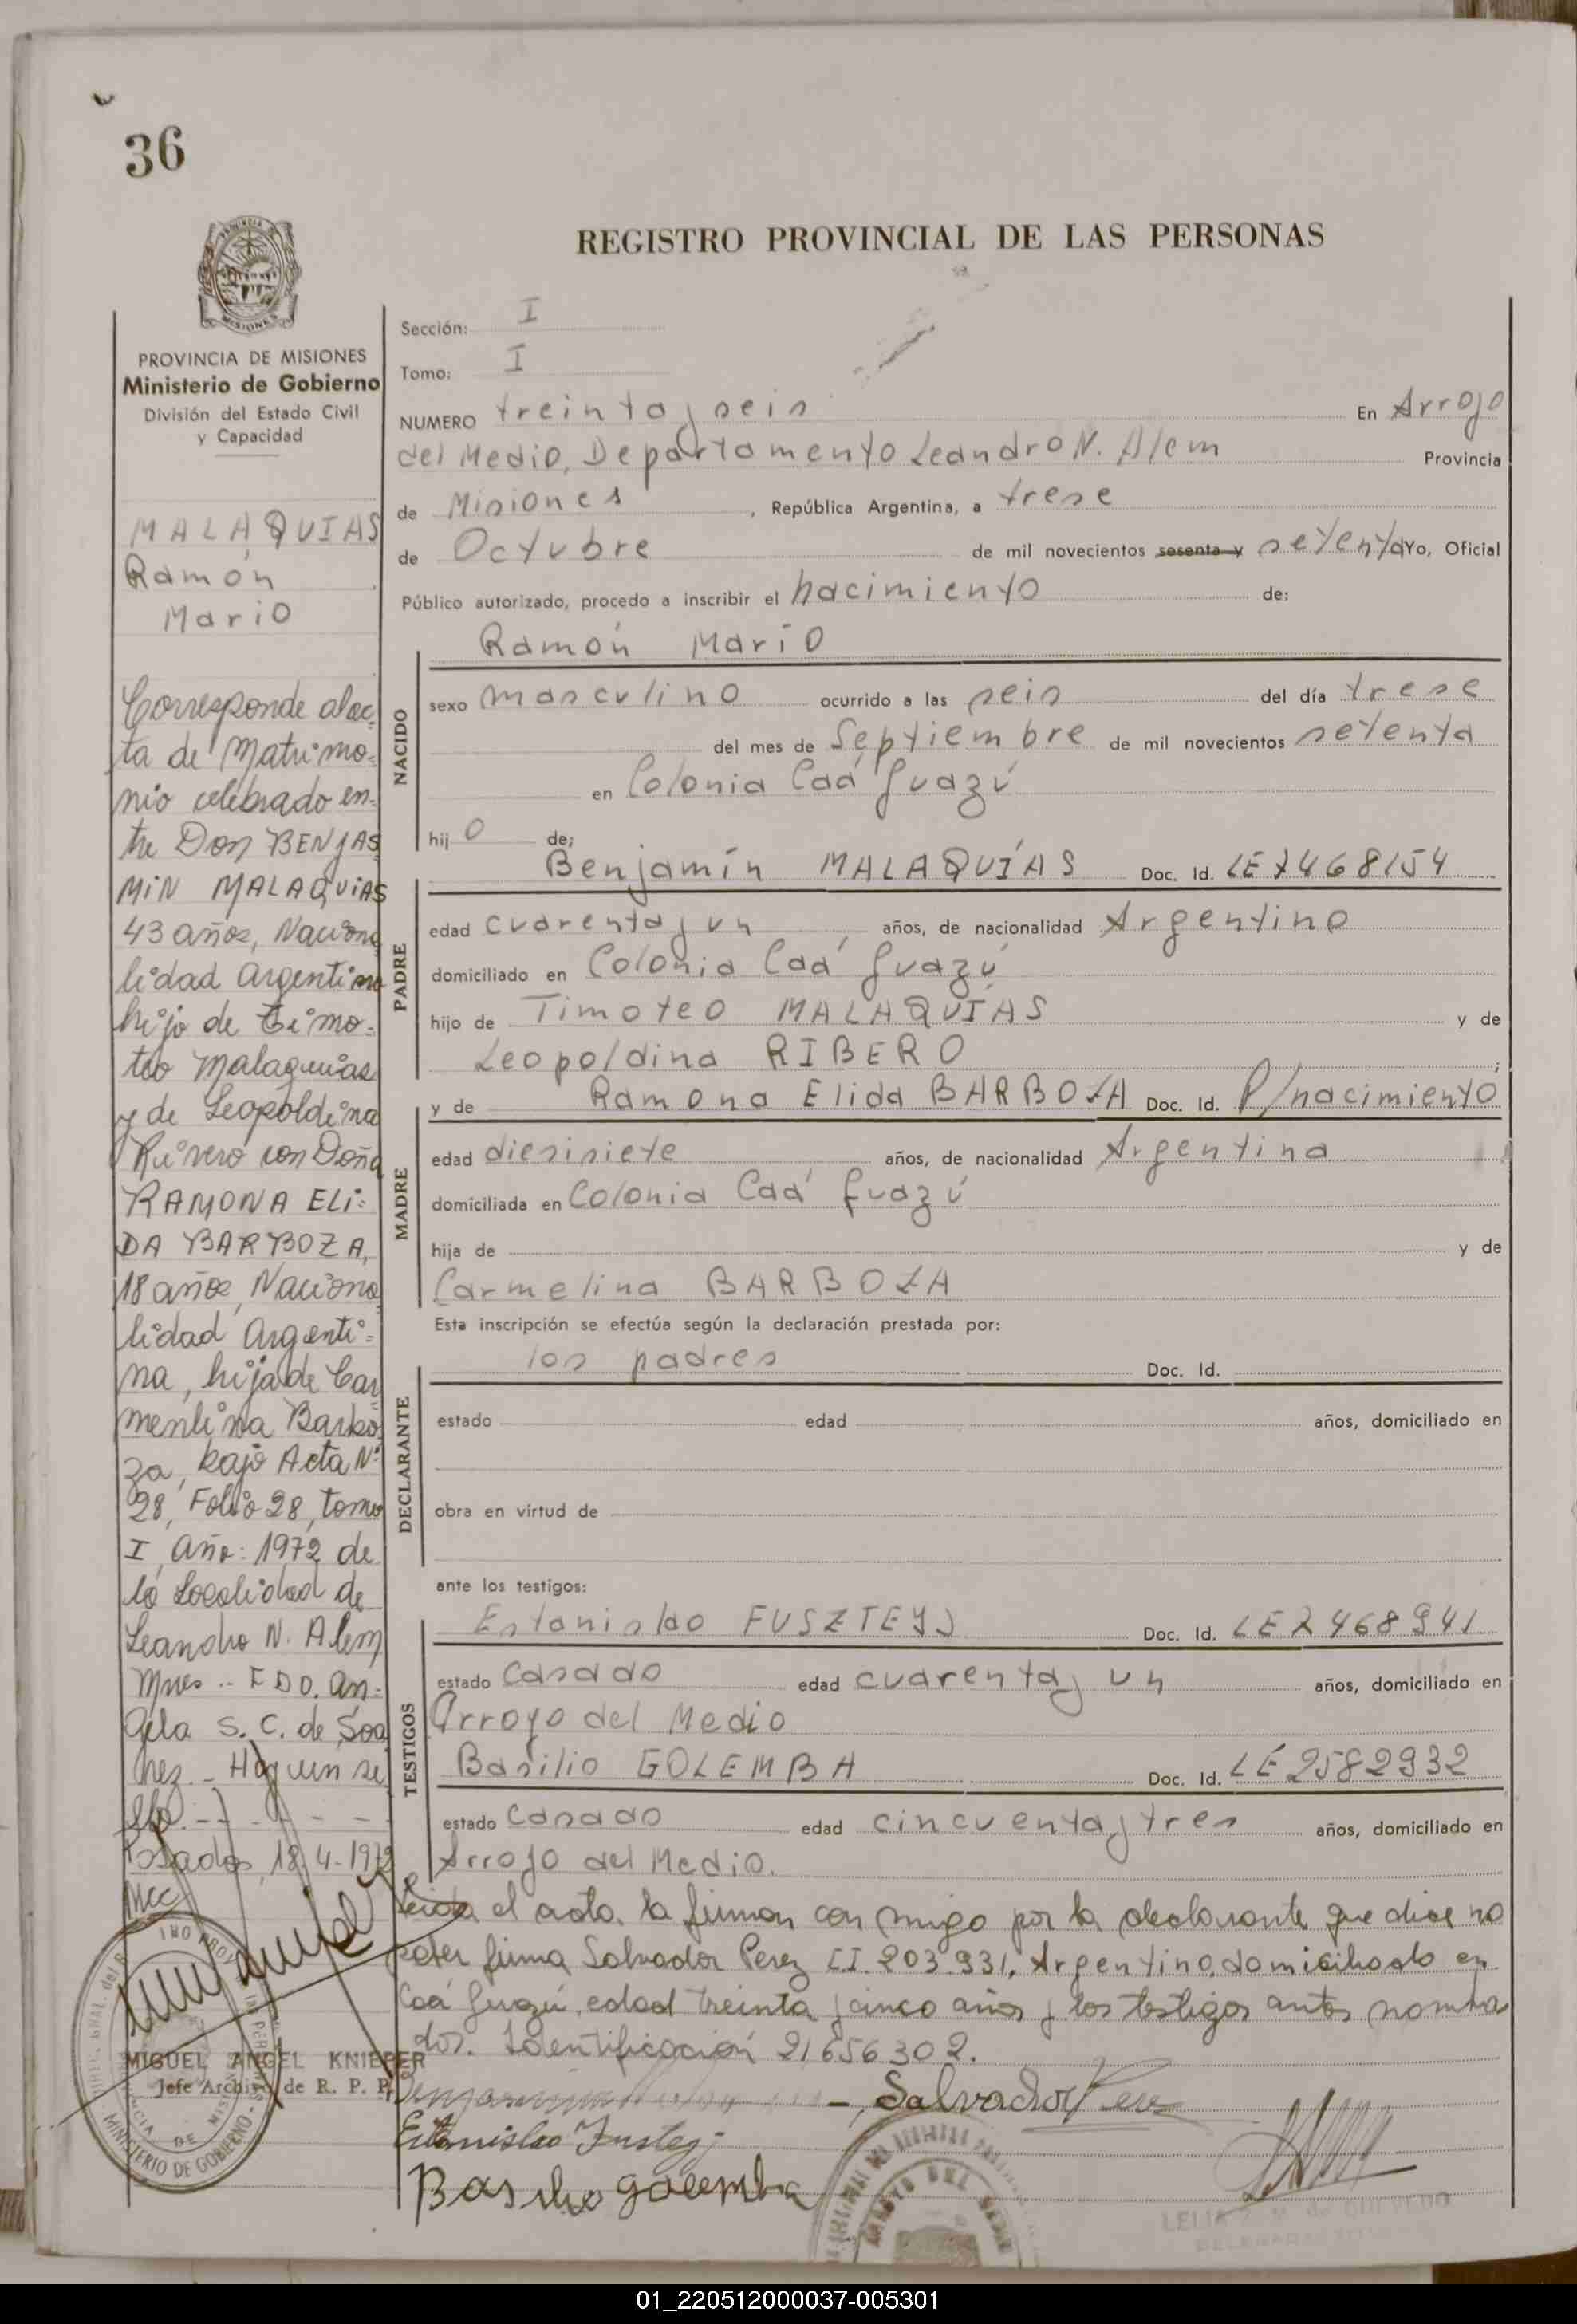 36
REGISTRO PROVINCIAL DE LAS PERSONAS
MISIONES
PROVINCIA DE MISIONES
Ministerio de Gobierno
División del Estado Civil
y Capacidad
MALAQUIAS
Ramón
Mario
Corresponde al ac-
ta de Matrimo-
nio celebrado en-
tre Don BENJAS
MIN MALAQUIAS
43 años, Naciona
lidad argentino
hijo de Timo-
teo Malaquias
y de Leopoldina
Rivero con Doña
RAMONA ELI-
DA BARBOZA,
18 años, Naciona
lidad Argenti-
na, hija de Car
menlina Barbo
za, bajo Acta Nº
28, Folio 28, tomo
I, año: 1972 de
la Localidad de
Leandro N. Alem
Mnes.- FDO. An-
gela S. C. de Soa
hez.- Hay un se
llo.- - - -
Posadas, 18-4-1972
Mcc
MIGUEL ANGEL KNIEPER
Jefe Archivo de R. P. P.
MINISTERIO DE GOBIERNO
Sección: I
Tomo: I
NUMERO treinta y seis En Arroyo
del Medio, Departamento Leandro N. Alem Provincia
de Misiones, República Argentina, a trese
de Octubre de mil novecientos sesenta y setenta Yo, Oficial
Público autorizado, procedo a inscribir el nacimiento de:
Ramón Mario
NACIDO
sexo masculino ocurrido a las seis del día trese
del mes de Septiembre de mil novecientos setenta
en Colonia Caá Guazú
hij o de;
Benjamín MALAQUÍAS Doc. Id. LE 7468154
PADRE
edad cuarenta y un años, de nacionalidad Argentino
domiciliado en Colonia Caá Guazú
hijo de Timoteo MALAQUÍAS y de
Leopoldina RIBERO ;
y de Ramona Elida BARBOZA Doc. Id. P/nacimiento
MADRE
edad diesisiete años, de nacionalidad Argentina
domiciliada en Colonia Caá Guazú
hija de y de
Carmelina BARBOZA
Esta inscripción se efectúa según la declaración prestada por:
los padres Doc. Id.
DECLARANTE
estado edad años, domiciliado en
obra en virtud de
ante los testigos:
Estanislao FUSZTEJJ Doc. Id. LE 7468941
TESTIGOS
estado casado edad cuarenta y un años, domiciliado en
Arroyo del Medio
Basilio GOLEMBA Doc. Id. LE 2582932
estado casado edad cincuenta y tres años, domiciliado en
Arroyo del Medio.
Leida el acta. la firman con migo por la declarante que dise no
saber firma Salvador Perez C.I. 203.931, Argentino, domiciliado en
Caá Guazú, edad treinta y cinco años y los testigos antes nombra
dos. Identificación 21656302.
Salvador Perez
Estanislao Fustejj
Basilio golemba
01_220512000037-005301